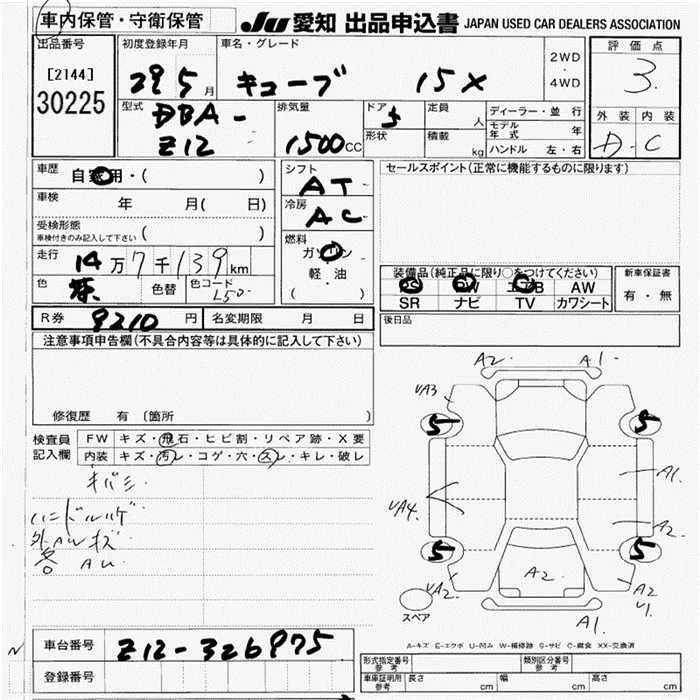 車内保管・守衛保管 JU 愛知 出品申込書 JAPAN USED CAR DEALERS ASSOCIATION
出品番号 初度登録年月 車名・グレード 評価点
[2144] 29 5月 キューブ 15X 2WD・4WD 3
30225
型式 DBA-Z12 排気量 1500CC ドア 5 形状 定員 人 積載 kg
ディーラー・並行
モデル年式 年
ハンドル 左・右
外装 内装
D C
車歴 自家用・( )
車検 年 月( 日)
受検形態
車検付きのみ記入して下さい
走行 14万7千139km
色 色替 色コード L50
シフト AT
冷房 AC
燃料 ガソリン
軽・油
( )
セールスポイント(正常に機能するものに限ります)
装備品(純正品に限り○をつけてください) 新車保証書
PS PW エアB AW 有・無
SR ナビ TV カワシート
R券 9210円 名変期限 月 日
後日品
注意事項申告欄(不具合内容等は具体的に記入して下さい)
修復歴 有 〔箇所 〕
検査員記入欄
FW キズ・飛石・ヒビ割・リペア跡・X要
内装 キズ・汚レ・コゲ・穴・スレ・キレ・破レ
キバミ
ハンドルハゲ
外AWキズ
各 AU
A2 A1
UA3
5 5
A1
UA4
A2
5 5
UA2 A2 A2
U1
スペア
A1
A-キズ E-エクボ U-凹み W-補修跡 S-サビ C-腐食 XX-交換済
車台番号 Z12-326975
登録番号
形式指定番号 参考 類別区分番号 参考
車庫証明用 参考 長さ cm 幅 cm 高さ cm